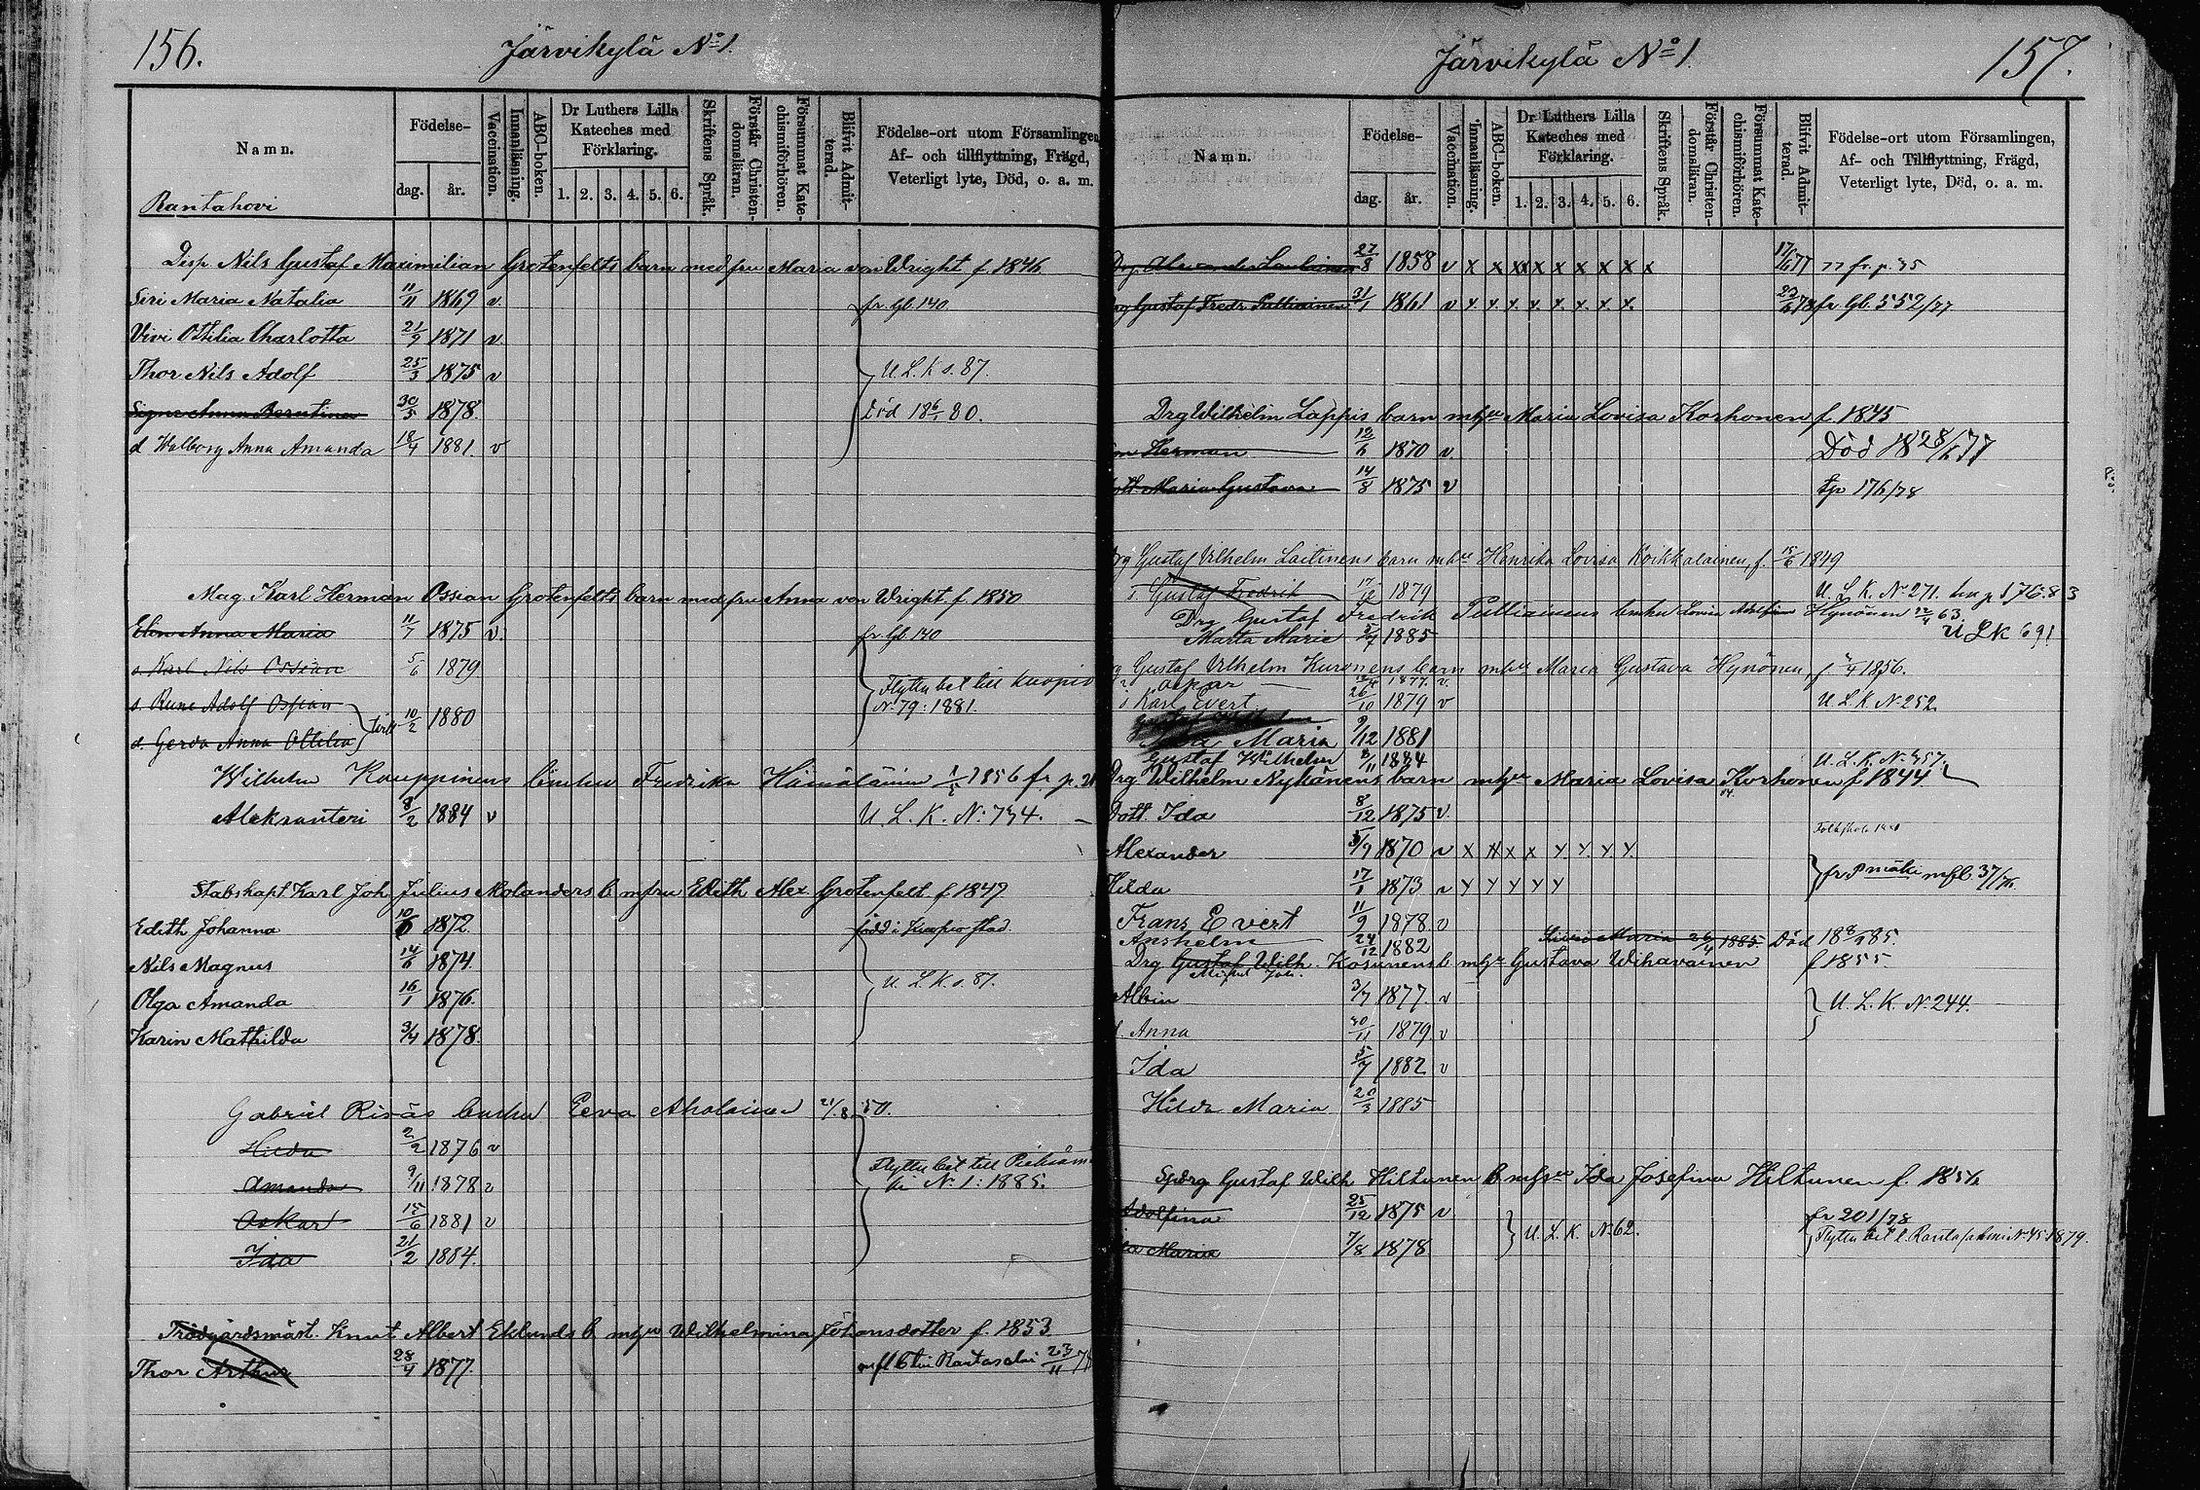 156.
Järvikylä No 1.
Namn.
Födelse-
dag.
år.
Vaccination.
Innanläsning.
ABC-boken.
Dr Luthers Lilla Kateches med Förklaring.
1. 2. 3. 4. 5. 6.
Skriftens Språk.
Förstår Christendomsläran.
Försummat Katechismiförhören.
Blifvit Admitterad.
Födelse-ort utom Församlingen,
Af- och tillflyttning, Frägd,
Veterligt lyte, Död, o. a. m.
Rantahovi
Disp. Nils Gustaf Maximilian Grotenfelts barn med fru Maria von Wright f. 1846
Siri Maria Natalia 11/11 1869 v. fr. gb. 140.
Vivi Ottilia Charlotta 21/9 1871 v.
Thor Nils Adolf 25/3 1875 v U. L. K. s. 87.
Signe Anna 30/5 1878. Död 18 80.
d Walborg Anna Amanda 18/4 1881. v
Mag. Karl Herman Ossian Grotenfelts barn med fru Anna von Wright. f 1850
Elin Anna Maria 11/7 1875 v. fr. gb. 140
s. Karl Nils Ossian 5/6 1879
s. Rune Adolf Ossian Flytta bet till Kuopio
d. Gerda Anna Ottilia 10/2 1880 No 79: 1881.
Wilhelm Kauppinens hustru Fredrika Hämäläinen 1856 fr. p.
Aleksanteri 8/2 1884 v U. L. K. N: 734.
Stabskapt. Karl Joh. Julius Molanders b. m fru Edith Alex. Grotenfelt. f. 1849.
Edith Johanna 10/6 1872. född i Kuopio stad.
Nils Magnus 14/6 1874.
Olga Amanda 16/1 1876. U. L. K. s. 87.
Karin Mathilda 3/4 1878.
Gabriel hustru Eeva Aholainen 21/8 50.
Hilda 2/2 1876 v
Amanda 9/11 1878 v Flytta bet till Pieksämäki N 1: 1885.
Oskar 15/6 1881 v
Ida 21/2 1884.
Trädgårdsmäst. Knut Albert Eklunds b. m hu Wilhelmina Johansdotter f. 1853.
Thor Arthur 28/4 1877. 23/11 78
157.
Järvikylä No 1.
Namn.
Födelse-
dag.
år.
Vaccination.
Innanläsning.
ABC-boken.
Dr Luthers Lilla Kateches med Förklaring.
1. 2. 3. 4. 5. 6.
Skriftens Språk.
Förstår Christendomsläran.
Försummat Katechismiförhören.
Blifvit Admitterad.
Födelse-ort utom Församlingen,
Af- och Tillflyttning, Frägd,
Veterligt lyte, Död, o. a. m.
Drg. Alexander 27/8 1858 v x x xx x x x x x x 17/6 77 77 fr. p. 35
Gustaf Fredr. Pulliainen 31/1 1861 v x. x. x. x. x. x. x. x. fr. gb. 552/77
Drg Wilhelm Lappis barn m hu Maria Lovisa Korhonen f. 1845
Herman 12/6 1870 v. Död 18 28/6 77
dott. Maria Gustava 14/8 1875 v tp 176/78
Drg Gustaf Vilhelm Laitinens barn m hu Henrika Lovisa Koikkalainen, f. 15/6 1849
s Gustaf Fredrik 17/12 1879 U. L. K. No. 271.
Drg Gustaf Fredrik Pulliainens hustru Lovisa Hynönen 63.
Marta Maria 1885 U L k 691
Gustaf Vilhelm Kuronens barn m hu Maria Gustava Hynönen f 1856.
1877. v.
s Karl Evert 26/10 1879 v U. L. K. No 252
Maria 9/12 1881
Gustaf Wilhelm 1884 U. L. K. No 357.
Drg Wilhelm Nykänens barn m hu Maria Lovisa Korhonen f 1844.
Dott. Ida 8/12 1875 v.
Alexander 5/9 1870 v
Hilda 17/1 1873 v
Frans Evert 11/9 1878 v
Anshelm 24/12 1882 Maria 1885. Död 18 85.
Drg Gustaf Wilh. Kosunens b. m hu Gustava Wihavainen f 1855.
Albin 3/7 1877 v U. L. K. No 244.
d. Anna 30/11 1879. v
Ida 5/7 1882 v
Hilda Maria 20/3 1885
Gustaf Wilh. Hiltunen b. m hu Ida Josefina Hiltunen f.
Adolfina 25/12 1875 v fr 201/78
Maria 7/8 1878 U. L. K. No. 62. Flytta bet t. Rantasalmi No 45: 1879.